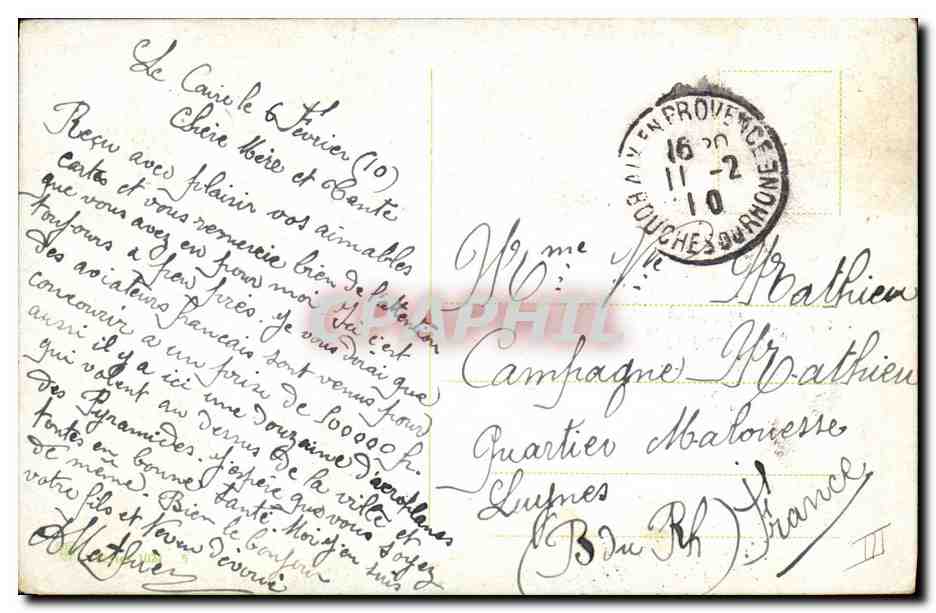 Le Caire le 6 Février (10)
Chère Mère et Tante
Reçu avec plaisir vos aimables
cartes et vous remercie bien de l'attention
que vous avez eu pour moi. Ici c'est
toujours a peu près. Je vous dirai que
des aviateurs français sont venus pour
concourir a un prix de 500000 fr.
aussi il y a ici une douzaine d'aeroplanes
qui volent au dessus de la ville et
des Pyramides. J'espère que vous soyez
toutes en bonne santé. Moi j'en suis
de même. Bien le bonjour
votre fils et Neveu dévoué
AMathieu
AIX EN PROVENCE
16
11 -2
10
BOUCHES DU RHONE
Mme Vve Mathieu
Campagne Mathieu
Quartier Malouesse
Luynes
(B du Rh) France
III
CPAPHIL